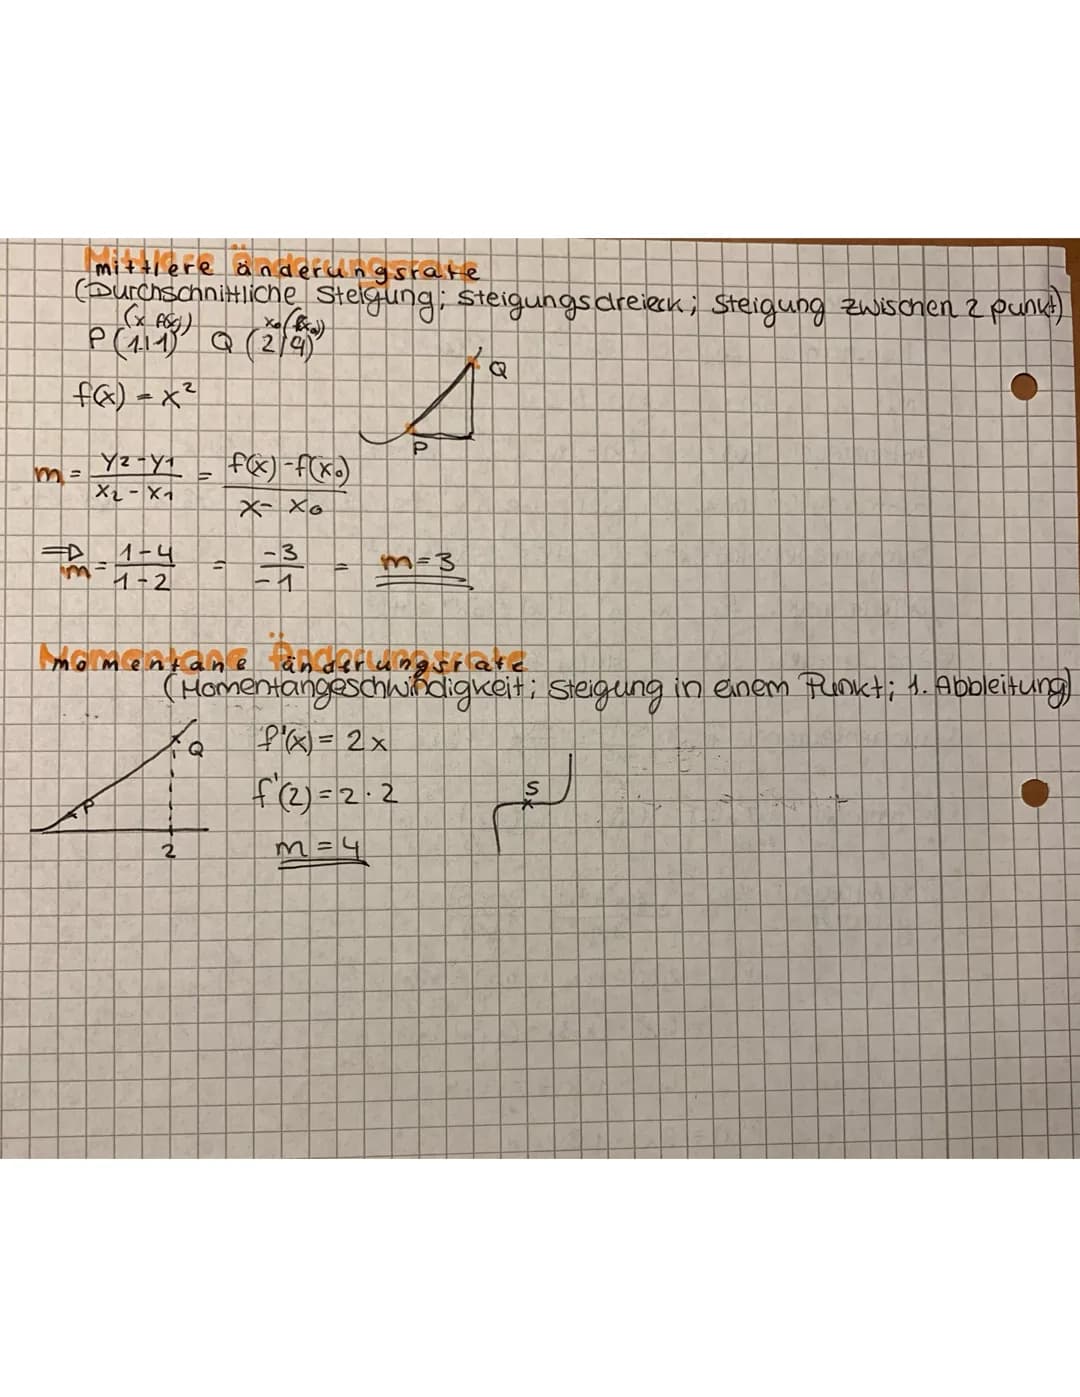 Mittlere änderungsrate
(Durchschnittliche Steigung; Steigungsdreieck; Steigung zwischen 2 punkt)
(x f(x)) x₀ (f(x₀))
P (1|1) Q (2/4)
f(x) = x²
Q
P
m = y₂-y₁ / x₂-x₁ = f(x)-f(x₀) / x-x₀
⇒ m = 1-4 / 1-2 = -3 / -1 = m=3
Momentane Änderungsrate
(Momentangeschwindigkeit; Steigung in einem Punkt; 1. Abbleitung)
Q
P
2
f'(x) = 2x
f'(2) = 2·2
m = 4
S